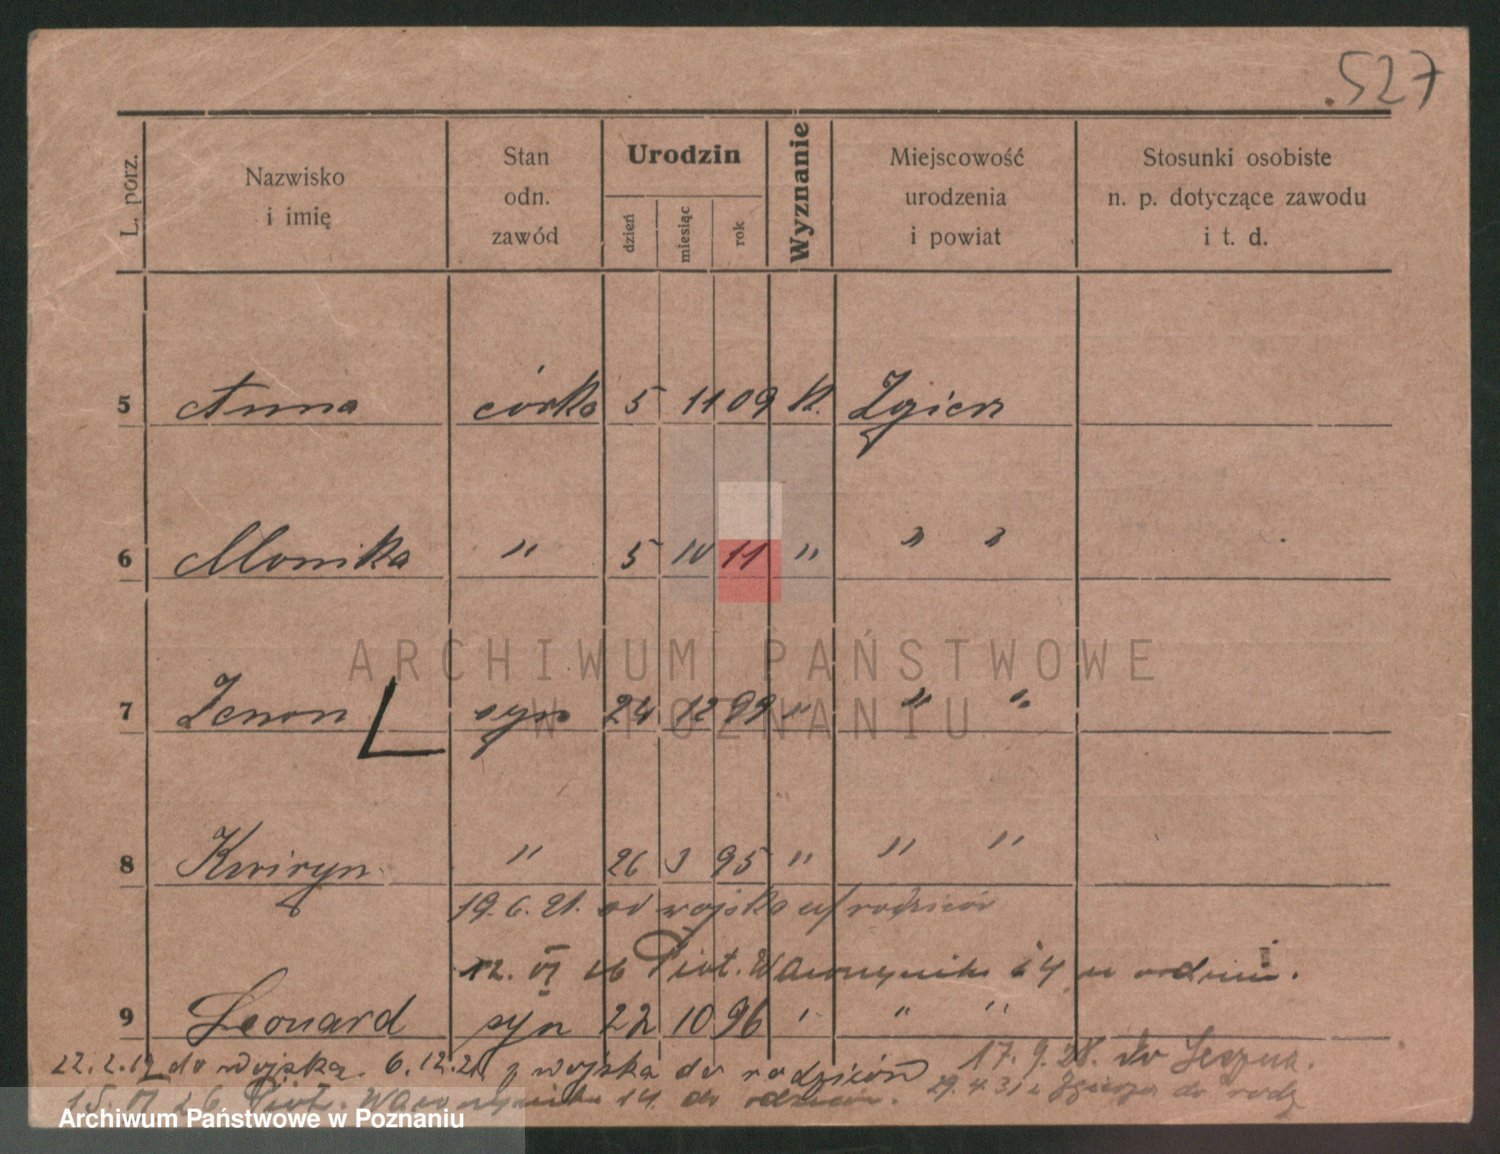 .527
L. porz.
Nazwisko
i imię
Stan
odn.
zawód
Urodzin
dzień
miesiąc
rok
Wyznanie
Miejscowość
urodzenia
i powiat
Stosunki osobiste
n. p. dotyczące zawodu
i t. d.
5 Anna córka 5 11 09 k. Zgierz
6 Monika " 5 10 11 " " "
ARCHIWUM PAŃSTWOWE
W POZNANIU
7 Zenon syn 24 12 99 " " "
8 Kwiryn " 26 3 95 " " "
19.6.21. od wojska rodziców
12. VI 26 Piot. Wawrzyniaka
9 Leonard syn 22 10 96 " " "
22.2.19 do wojska. 6.12.21 z wojska do rodziców 17.9.28. do
15. VI 26 Piot. Wawrzyniaka 14. do 29.4.31 z Zgierza do rodz
Archiwum Państwowe w Poznaniu